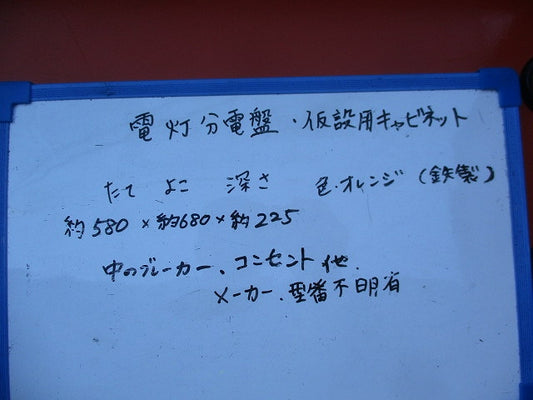 電灯分電盤・仮設用キャビネット
たて よこ 深さ 色・オレンジ (鉄製)
約580×約680×約225
中のブレーカー、コンセント他
メーカー、型番不明有